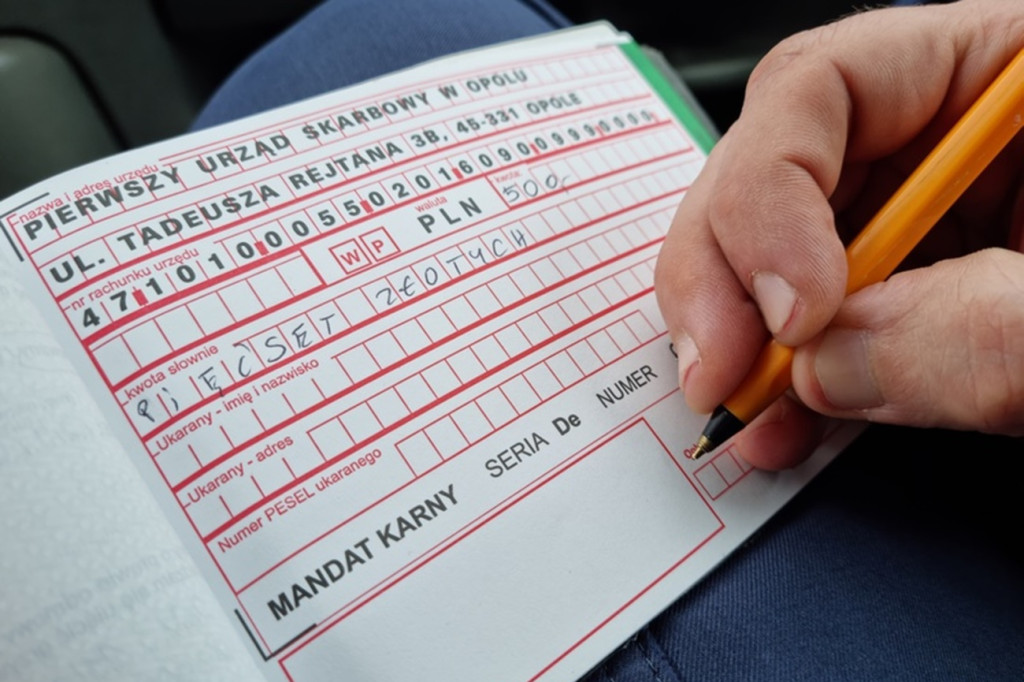 nazwa i adres urzędu
PIERWSZY URZĄD SKARBOWY W OPOLU
UL. TADEUSZA REJTANA 3B, 45-331 OPOLE
nr rachunku urzędu
47101000550201609009990000
WP
waluta
PLN
kwota
500,-
kwota słownie
PIĘĆSET ZŁOTYCH
Ukarany - imię i nazwisko
Ukarany - adres
Numer PESEL ukaranego
MANDAT KARNY SERIA De NUMER